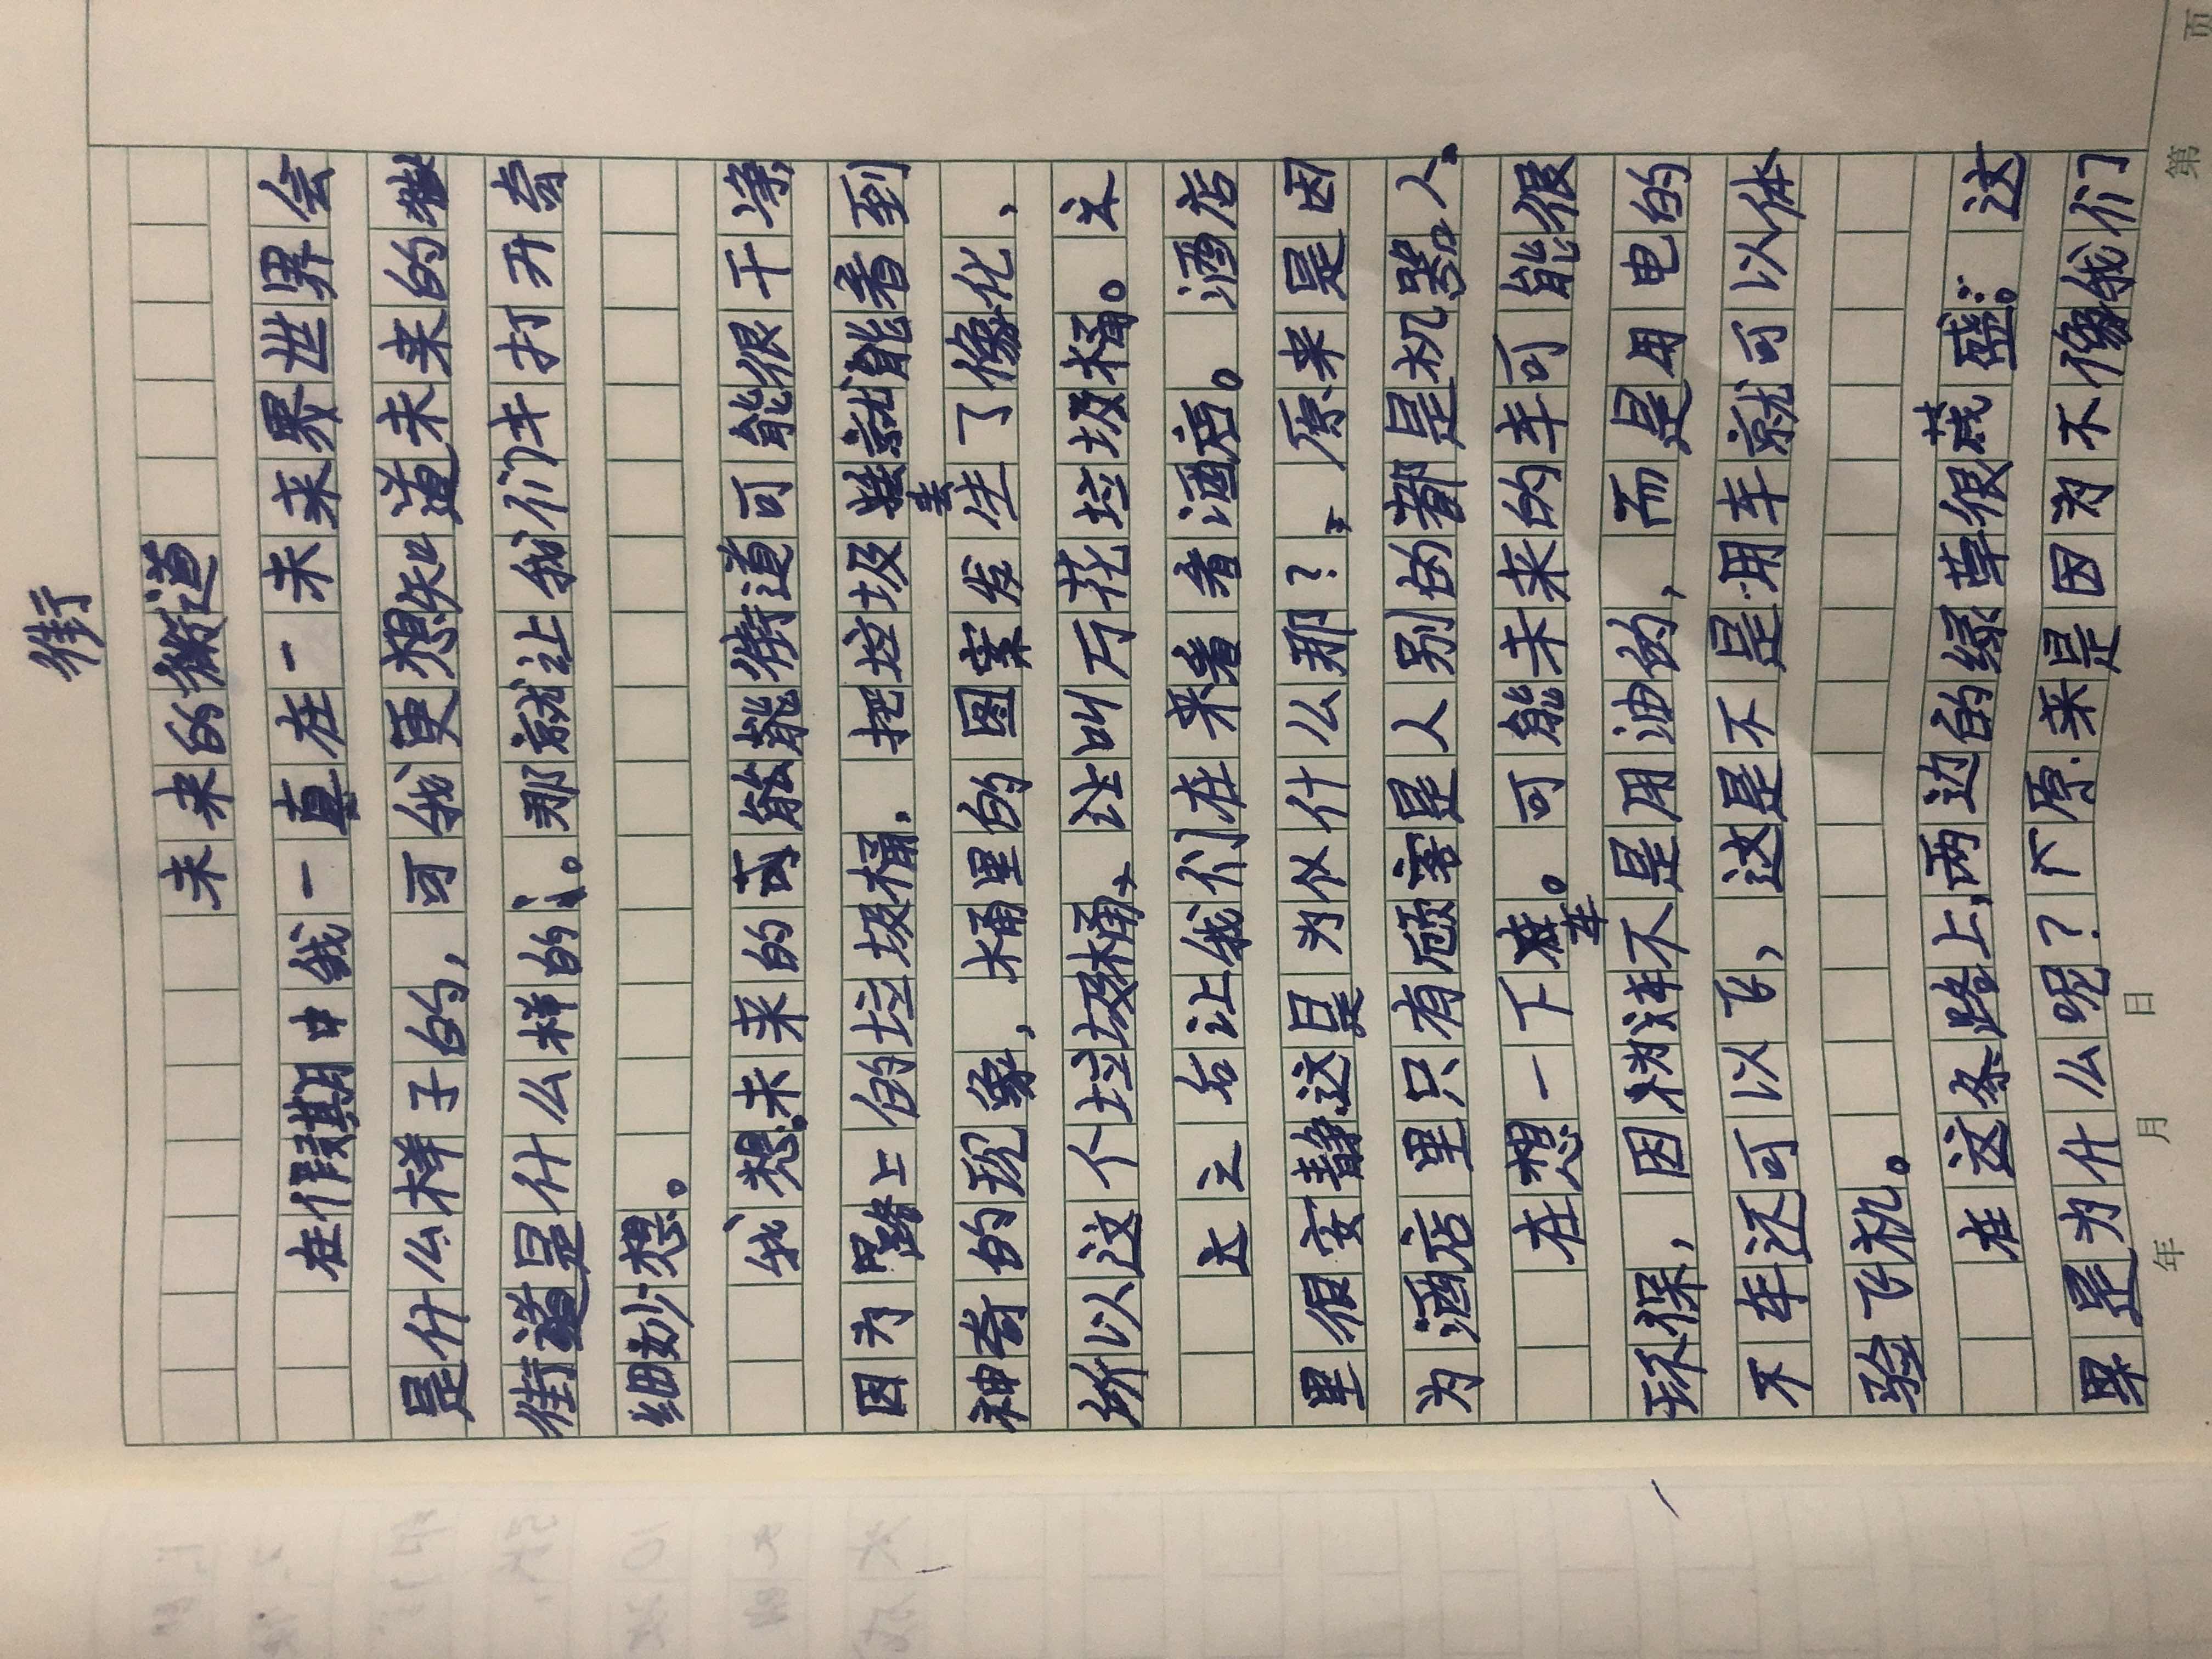 街
未来的道
在假期中我一直在一未来界世界会
是什么样子的,可我更想知道未来的
街道是什么样的。那就让我们卡打开奇
细妙想。
我想未来的可能能街道可能很干净
因为路上的垃圾桶,把垃圾丢就能看到
神奇的现象,桶里的图案发生了像化,
所以这个垃圾桶,让叫万花垃圾桶。文
文之名让我们在来看看酒店。酒店
里很安静这是为什么那?,原来是因
为酒店里只有顾客是人别的都是机器人。
在想一下车。可能未来的车可能很
环保,因为车不是用油的,而是用电的
不车还可以飞,这是不是用车就可以体
验飞机。
在这条路上,两边的绿草很茂盛。这
里是为什么呢?原来是因为不像我们
年 月 日 第 页